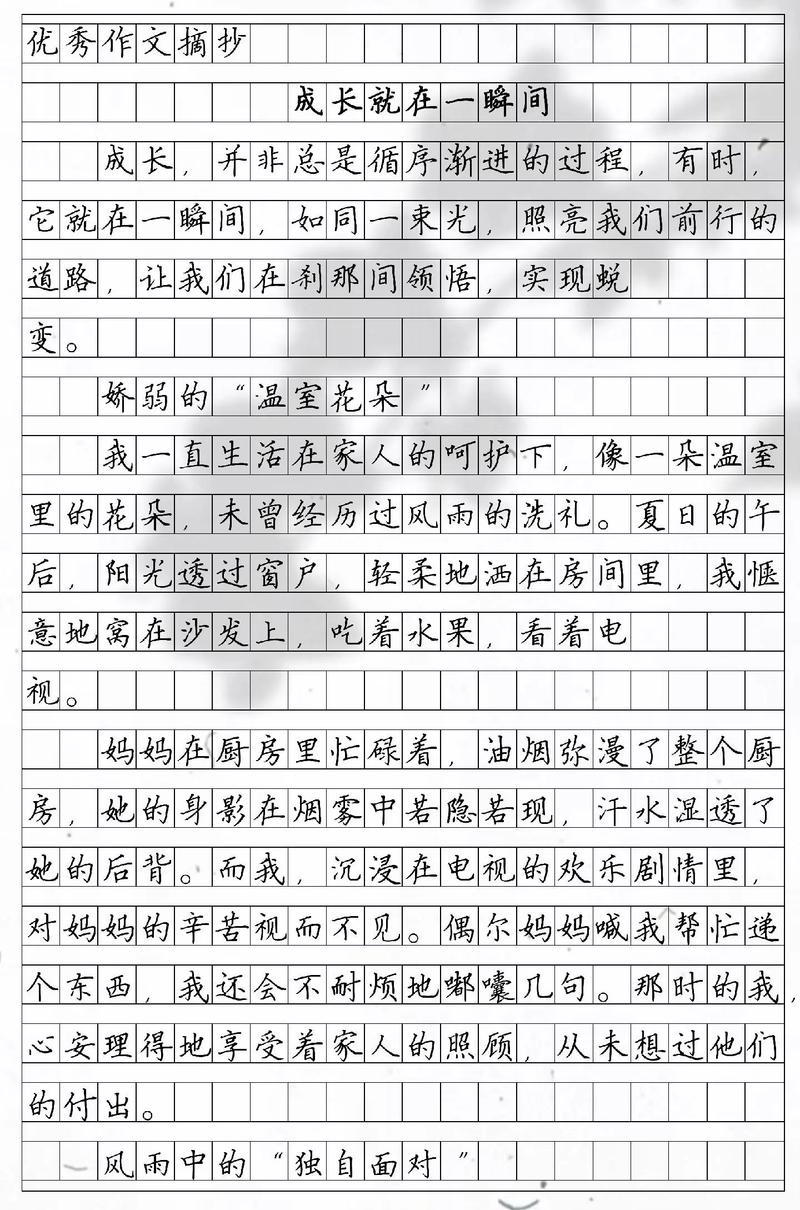 优秀作文摘抄
成长就在一瞬间
成长，并非总是循序渐进的过程，有时，
它就在一瞬间，如同一束光，照亮我们前行的
道路，让我们在刹那间领悟，实现蜕
变。
娇弱的“温室花朵”
我一直生活在家人的呵护下，像一朵温室
里的花朵，未曾经历过风雨的洗礼。夏日的午
后，阳光透过窗户，轻柔地洒在房间里，我惬
意地窝在沙发上，吃着水果，看着电
视。
妈妈在厨房里忙碌着，油烟弥漫了整个厨
房，她的身影在烟雾中若隐若现，汗水湿透了
她的后背。而我，沉浸在电视的欢乐剧情里，
对妈妈的辛苦视而不见。偶尔妈妈喊我帮忙递
个东西，我还会不耐烦地嘟囔几句。那时的我，
心安理得地享受着家人的照顾，从未想过他们
的付出。
风雨中的“独自面对”